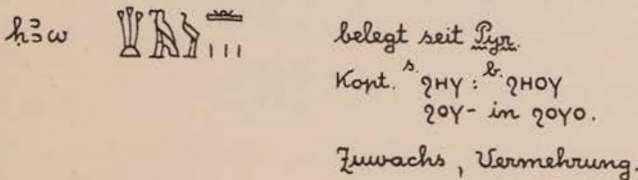 ḥꜣw 𓇉𓄿𓅱𓏛𓏥 belegt seit Pyr.
Kopt. s. ϩⲏⲩ : b. ϩⲏⲟⲩ
ϩⲟⲩ- in ϩⲟⲩⲟ.
Zuwachs, Vermehrung.